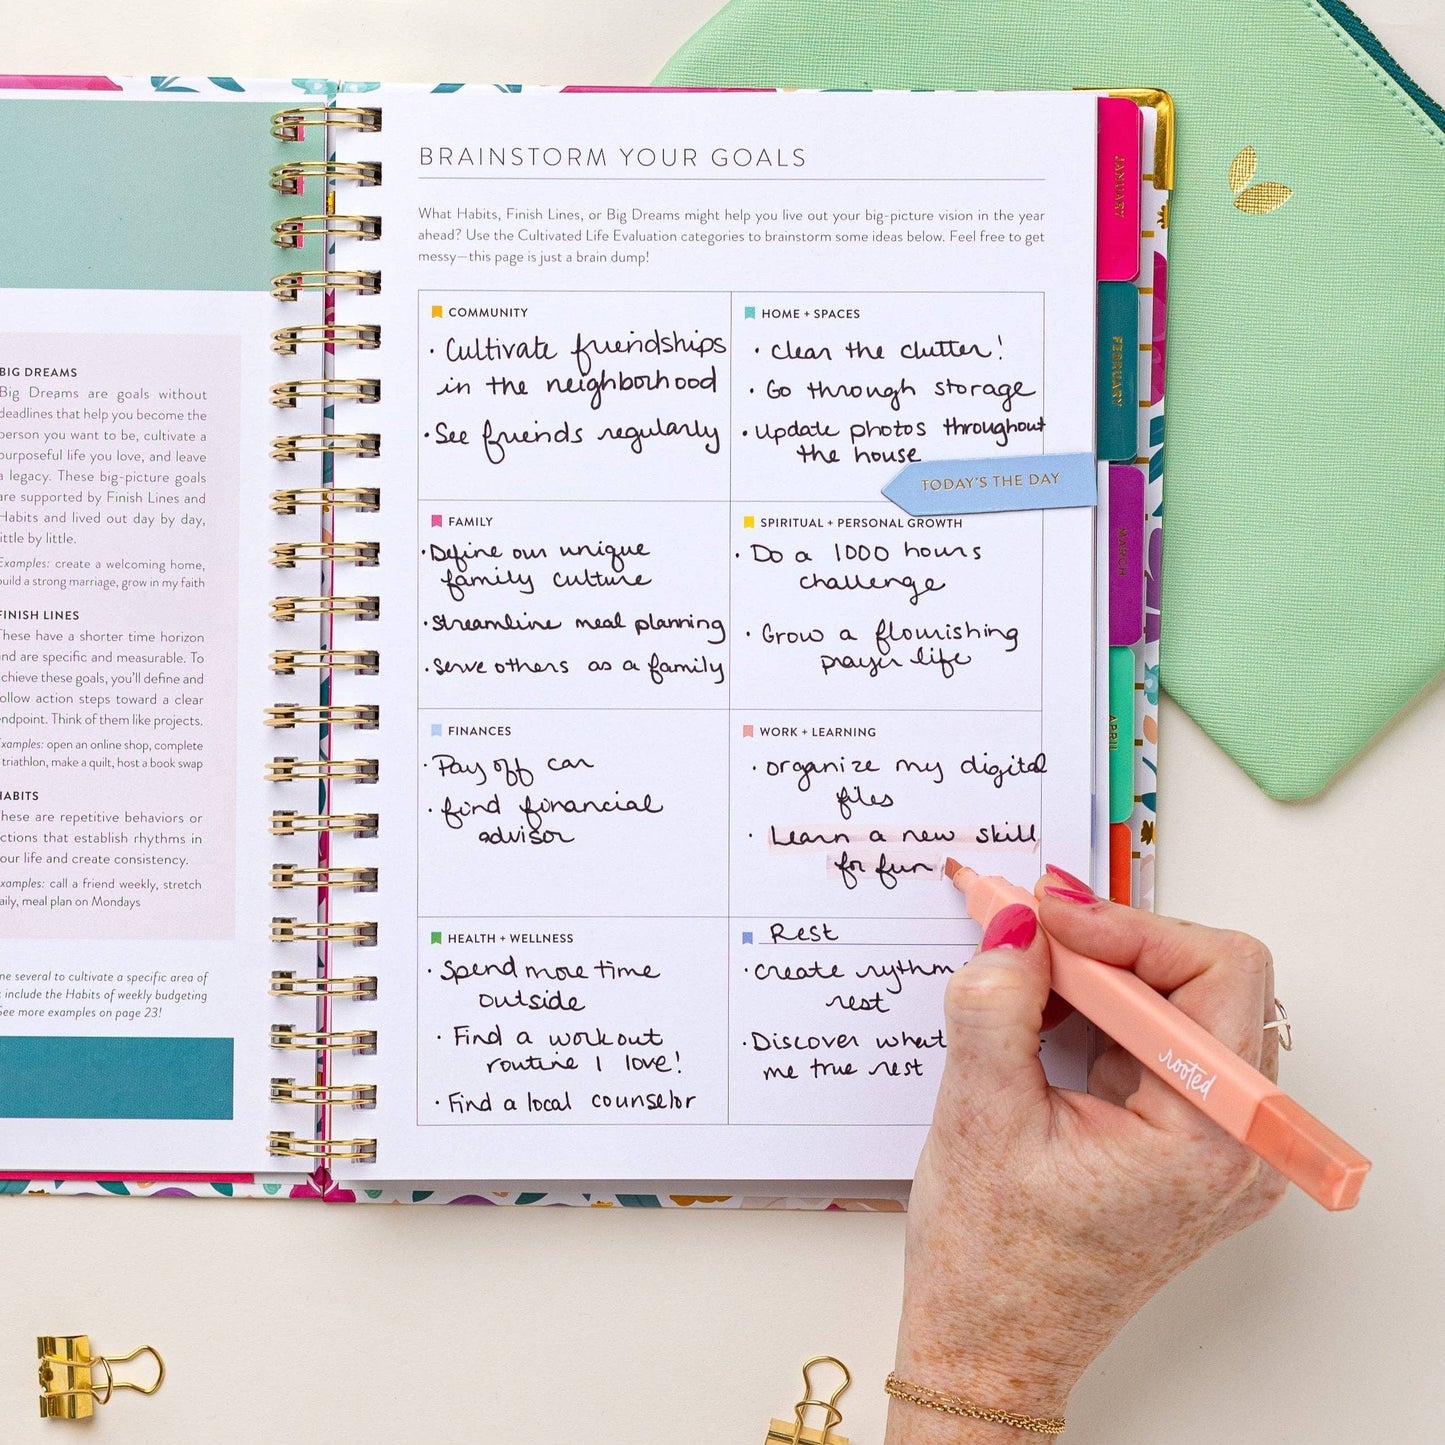 BIG DREAMS
Big Dreams are goals without
deadlines that help you become the
person you want to be, cultivate a
purposeful life you love, and leave
a legacy. These big-picture goals
are supported by Finish Lines and
Habits and lived out day by day,
little by little.
Examples: create a welcoming home,
build a strong marriage, grow in my faith
FINISH LINES
These have a shorter time horizon
and are specific and measurable. To
achieve these goals, you'll define and
follow action steps toward a clear
endpoint. Think of them like projects.
Examples: open an online shop, complete
triathlon, make a quilt, host a book swap
HABITS
These are repetitive behaviors or
actions that establish rhythms in
your life and create consistency.
Examples: call a friend weekly, stretch
daily, meal plan on Mondays
several to cultivate a specific area of
include the Habits of weekly budgeting
See more examples on page 23!
BRAINSTORM YOUR GOALS
What Habits, Finish Lines, or Big Dreams might help you live out your big-picture vision in the year
ahead? Use the Cultivated Life Evaluation categories to brainstorm some ideas below. Feel free to get
messy—this page is just a brain dump!
COMMUNITY
· Cultivate friendships
in the neighborhood
· See friends regularly
HOME + SPACES
· Clear the clutter!
· Go through storage
· Update photos throughout
the house
TODAY'S THE DAY
FAMILY
· Define our unique
family culture
· Streamline meal planning
· Serve others as a family
SPIRITUAL + PERSONAL GROWTH
· Do a 1000 hours
challenge
· Grow a flourishing
prayer life
FINANCES
· Pay off car
· find financial
advisor
WORK + LEARNING
· organize my digital
files
· Learn a new skill
for fun
HEALTH + WELLNESS
· Spend more time
outside
· Find a workout
routine I love!
· Find a local counselor
Rest
· create rythm
rest
· Discover what
me true rest
JANUARY
FEBRUARY
MARCH
APRIL
rooted